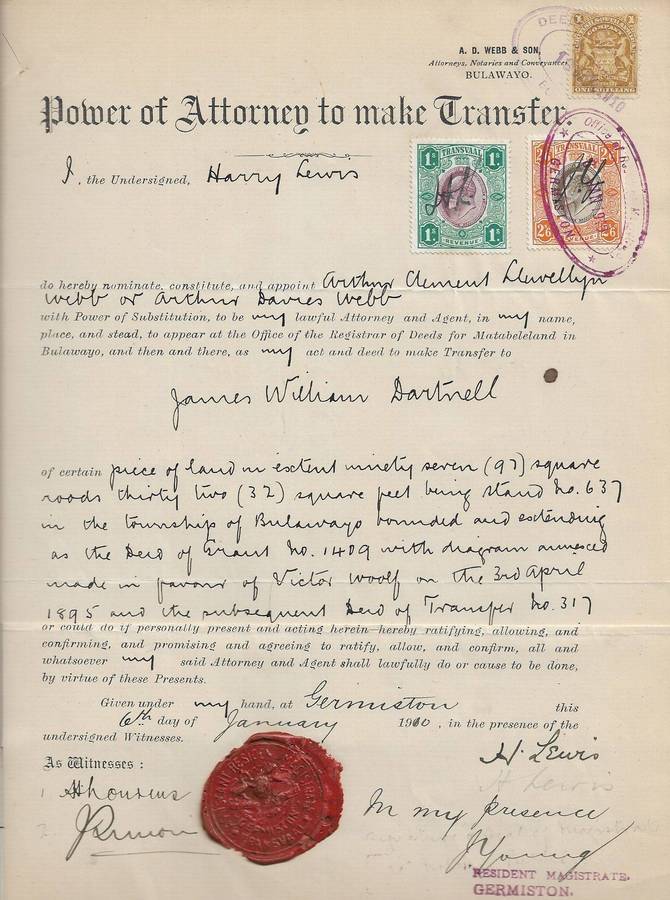 A. D. WEBB & SON,
Attorneys, Notaries and Conveyancers
BULAWAYO.
ONE SHILLING
Power of Attorney to make Transfer
TRANSVAAL
1s 1s
1s REVENUE 1s
TRANSVAAL
2/6 2/6
2/6 REVENUE 2/6
Office of
GERMISTON
I, the Undersigned, Harry Lewis
do hereby nominate, constitute, and appoint Arthur Clement Llewellyn
Webb or Arthur Davies Webb
with Power of Substitution, to be my lawful Attorney and Agent, in my name,
place, and stead, to appear at the Office of the Registrar of Deeds for Matabeleland in
Bulawayo, and then and there, as my act and deed to make Transfer to
James William Dartnell
of certain piece of land in extent ninety seven (97) square
roods thirty two (32) square feet being stand No. 637
in the township of Bulawayo bounded and extending
as the Deed of Grant No. 1409 with diagram annexed
made in favour of Victor Woolf on the 3rd April
1895 and the subsequent Deed of Transfer No. 317
or could do if personally present and acting herein—hereby ratifying, allowing, and
confirming, and promising and agreeing to ratify, allow, and confirm, all and
whatsoever my said Attorney and Agent shall lawfully do or cause to be done,
by virtue of these Presents.
Given under my hand, at Germiston this
6th day of January 1910, in the presence of the
undersigned Witnesses.
H. Lewis
As Witnesses :
1
2
In my presence
J Young
RESIDENT MAGISTRATE.
GERMISTON.